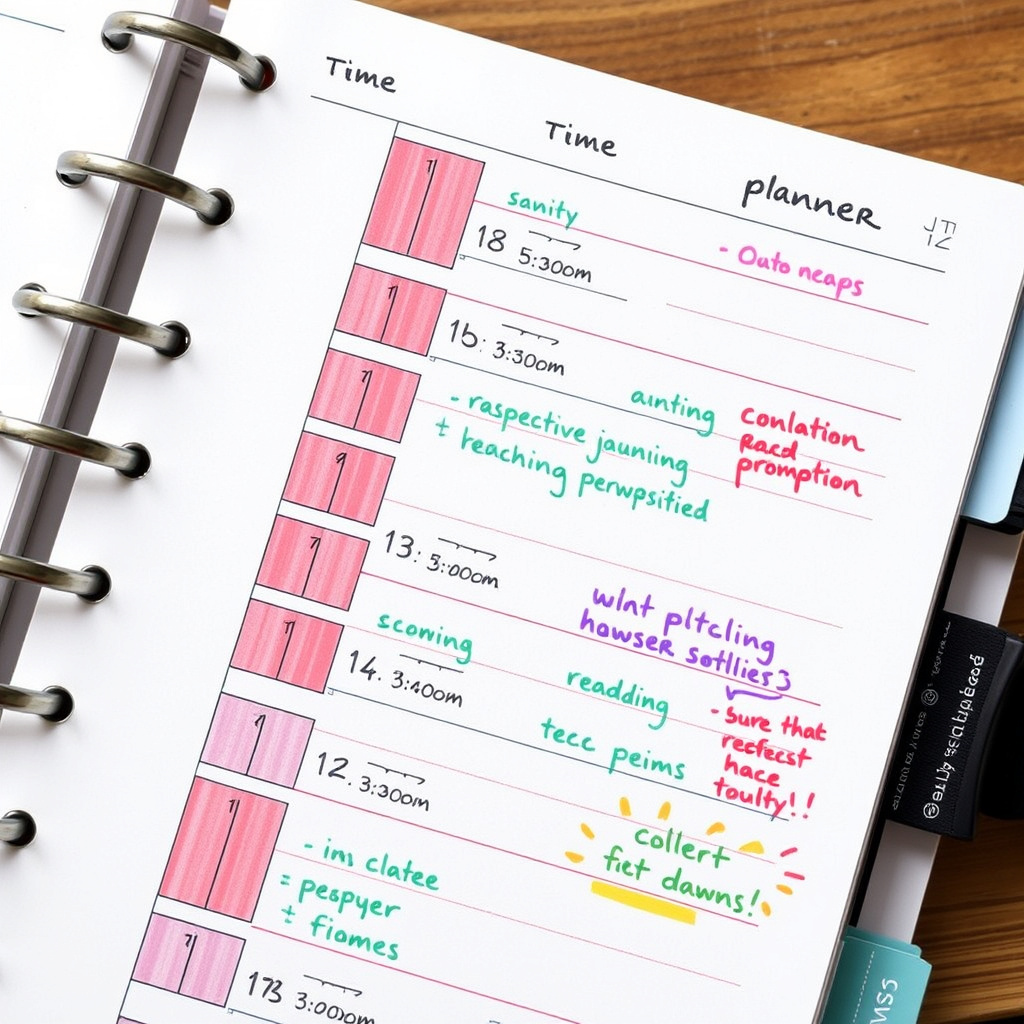 Time
Time
planner
sanity
18 5:300m
- Outo neaps
1b. 3:300m
aınting
conlation
Racd
promption
- raspective jauniing
± teaching perwpsitied
13. 5:000m
wlnt pltcling
howser sotllies3
scowing
14. 3:400m
readding
- Sure that
recfecst
hace
toulty!!
tecc peims
12. 3:300m
collert
fiet dawns!
- im clatee
= pespyer
± fiomes
173 3:000m